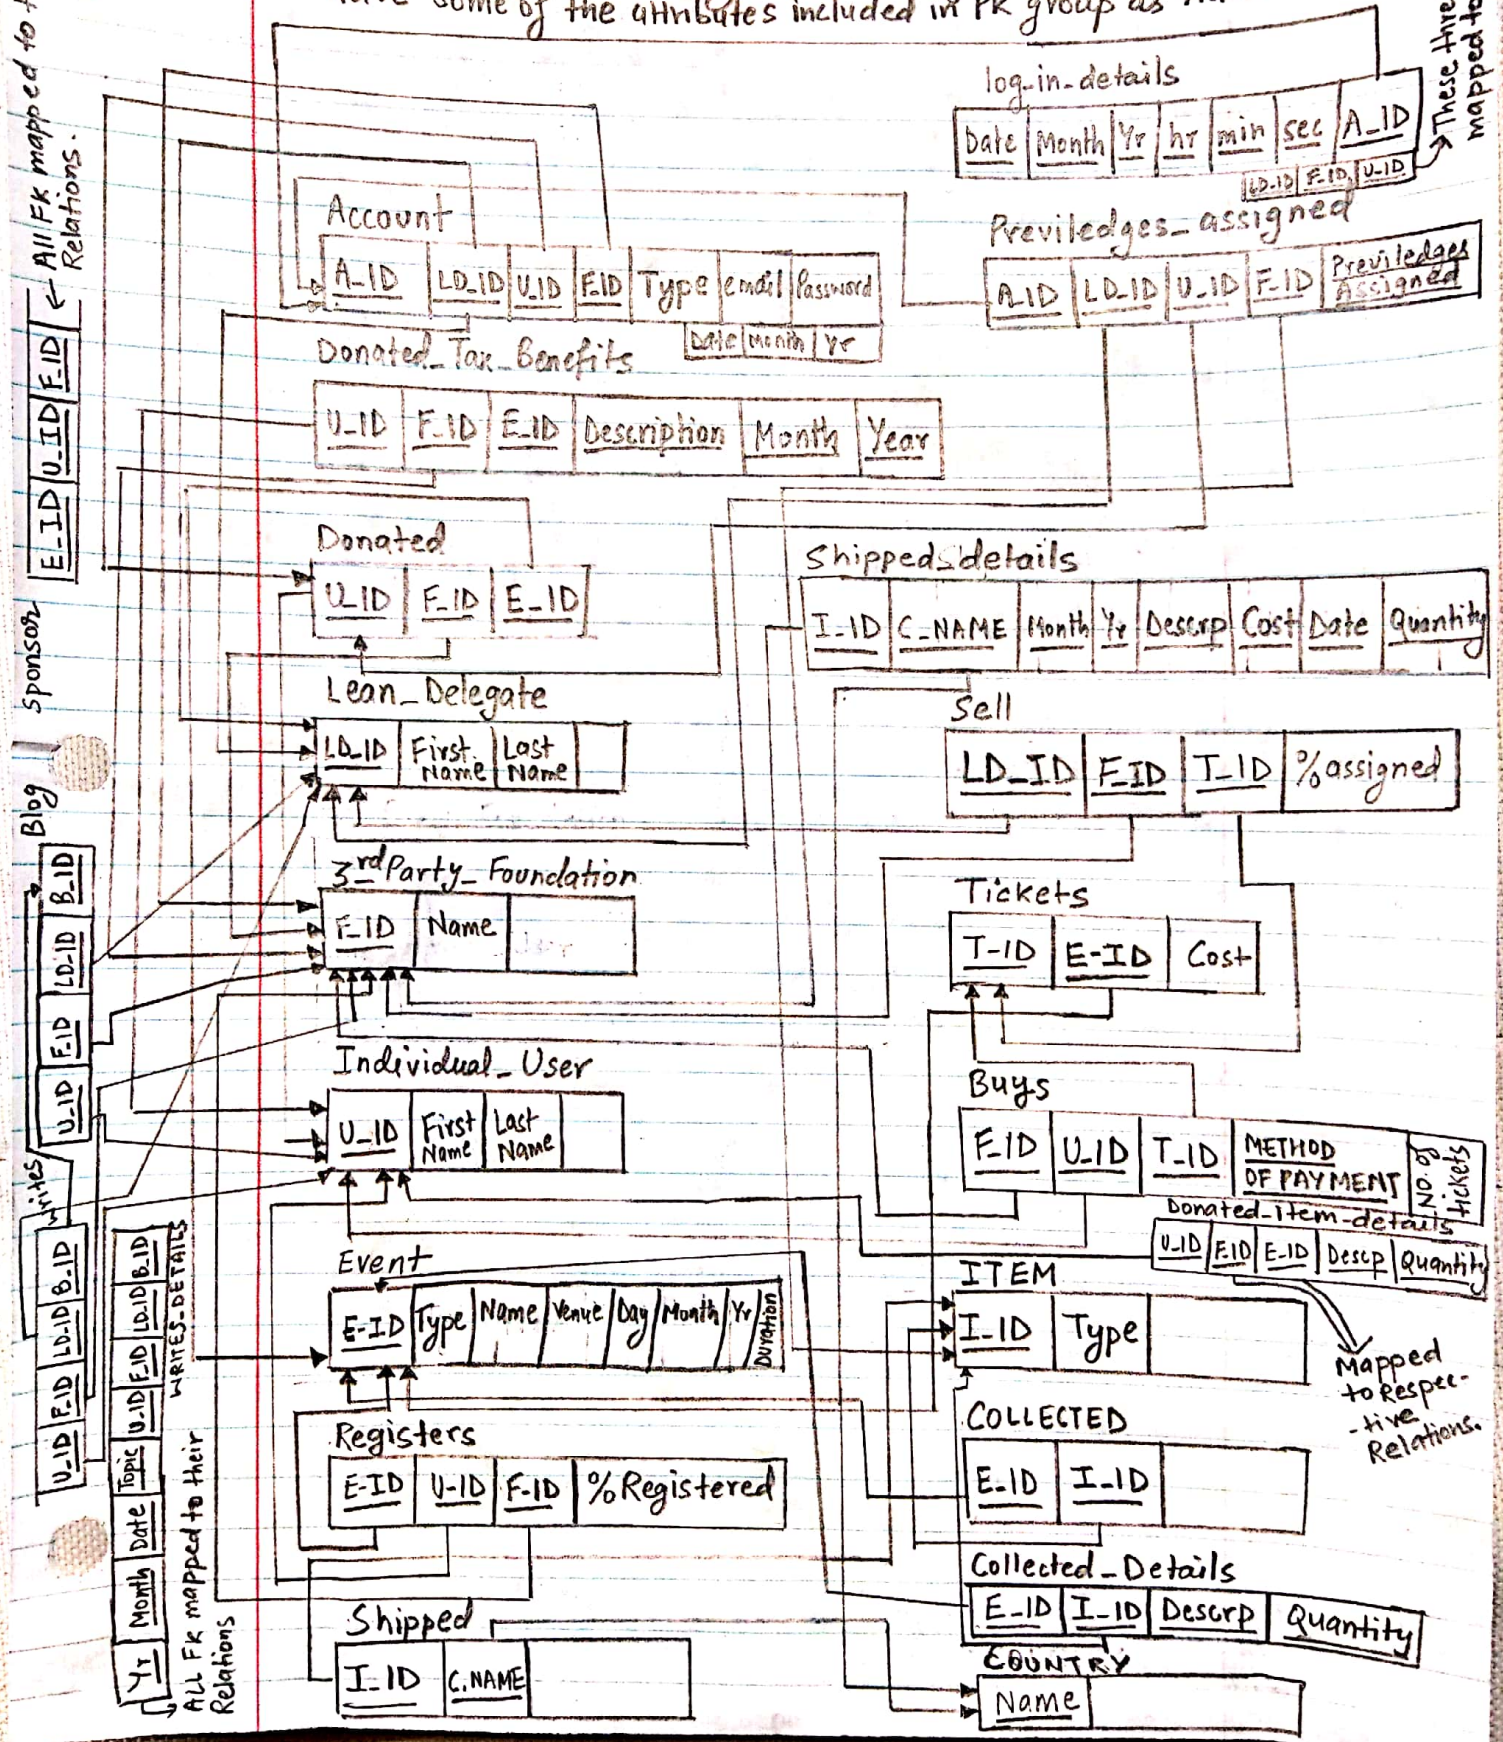 some of the attributes included in PK group as
log_in_details
Date Month Yr hr min sec A_ID
LD_ID F_ID U_ID
These
mapped to
Account
A_ID LD_ID U_ID F_ID Type email Password
Date Month Yr
Previledges_assigned
A_ID LD_ID U_ID F_ID Previledges Assigned
Donated_Tax_Benefits
U_ID F_ID E_ID Description Month Year
Donated
U_ID F_ID E_ID
Shipped_details
I_ID C_NAME Month Yr Descrp Cost Date Quantity
Lean_Delegate
LD_ID First Name Last Name
Sell
LD_ID F_ID T_ID % assigned
3rd Party_Foundation
F_ID Name
Tickets
T-ID E-ID Cost
Individual_User
U_ID First Name Last Name
Buys
F_ID U_ID T_ID METHOD OF PAYMENT NO. of tickets
Donated_item_details
U_ID F_ID E_ID Descp Quantity
Mapped
to Respec-
-tive
Relations.
Event
E-ID Type Name Venue Day Month Yr Duration
ITEM
I_ID Type
Registers
E-ID U-ID F-ID % Registered
COLLECTED
E_ID I_ID
Collected_Details
E_ID I_ID Descrp Quantity
Shipped
I_ID C.NAME
COUNTRY
Name
sponsor
E_ID U_ID F_ID
All FK mapped to
Relations.
Blog
U_ID F_ID LD_ID B_ID
writes
U_ID F_ID LD_ID B_ID
WRITES_DETAILS
Yr Month Date Topic U_ID F_ID LD_ID B_ID
ALL FK mapped to their
Relations